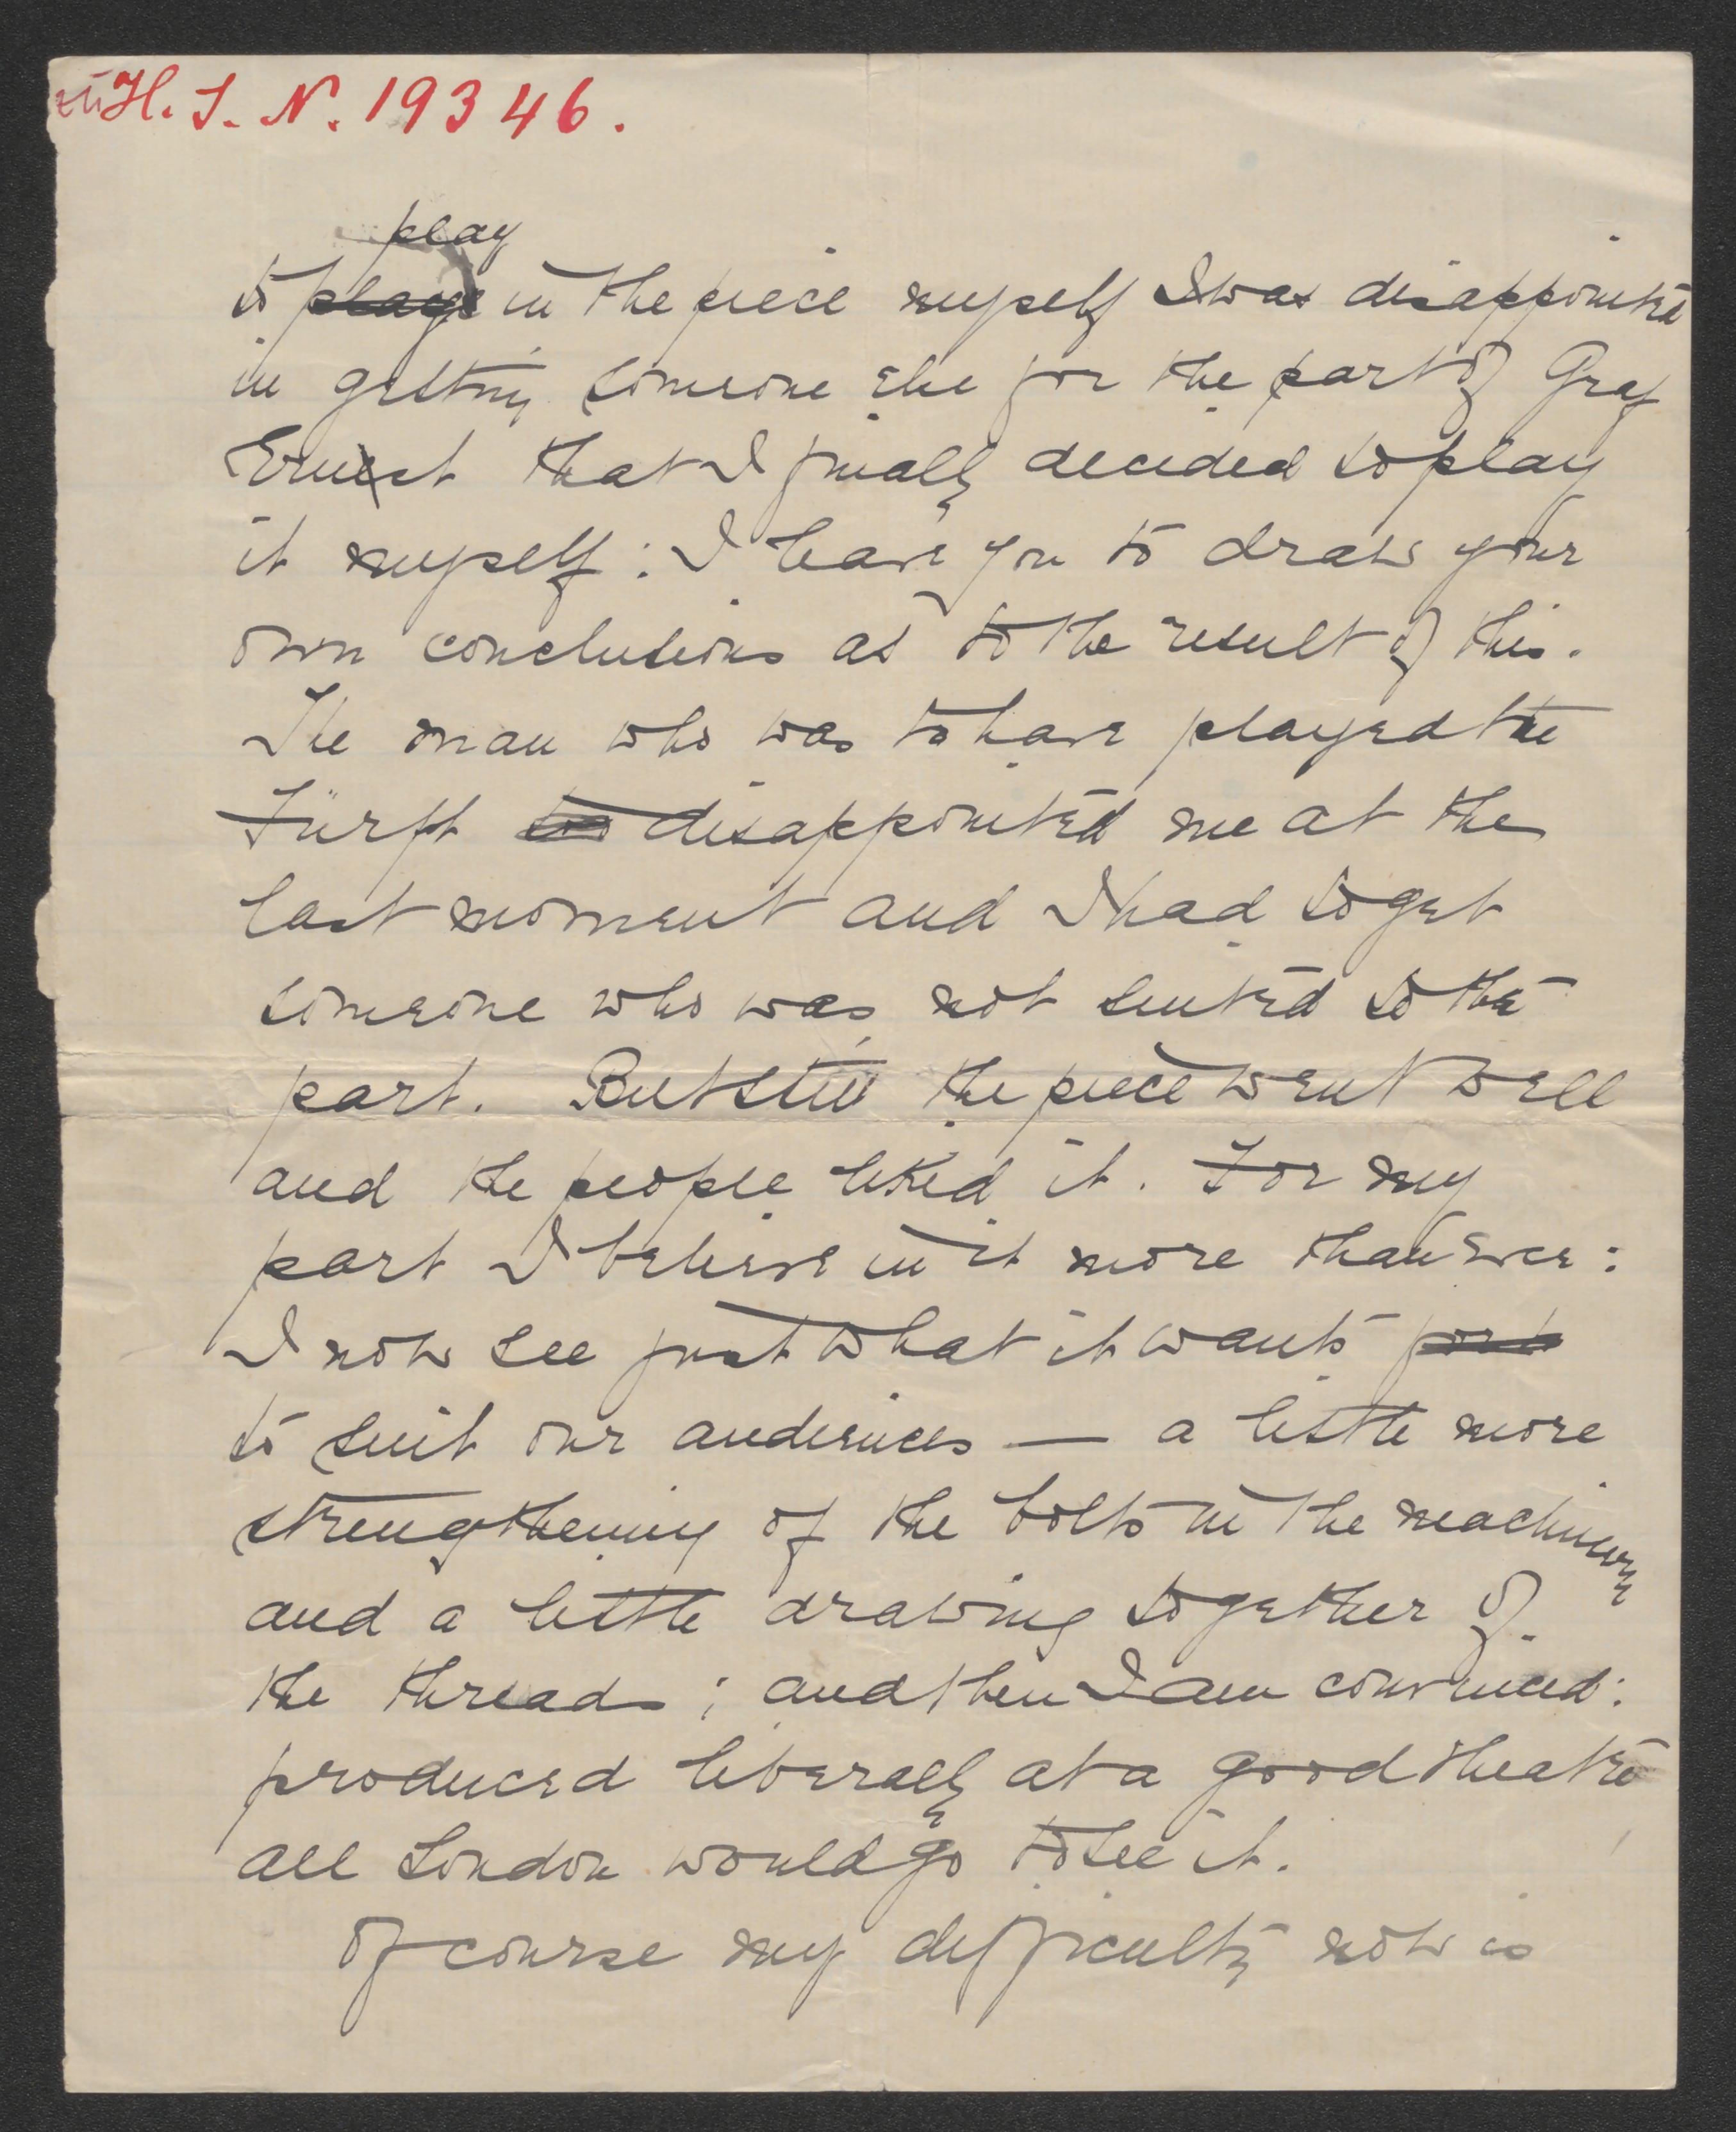 zu H. I. N. 19346.
play
to plays in the piece myself I was disappointed
in getting someone else for the part of Graf
Ernest that I finally decided to play
it myself: I leave you to draw your
own conclusions as to the result of this.
The man who was to have played the
Fürst disappointed me at the
last moment and I had to get
someone who was not suited to the
part. But still the piece went well
and the people liked it. For my
part I believe in it more than ever:
I now see just what it wants
to suit our audiences — a little more
strengthening of the bolts in the machinery
and a little drawing together of
the threads; and then I am convinced:
produced liberally at a good theatre
all London would go to see it.
Of course my difficulty now is